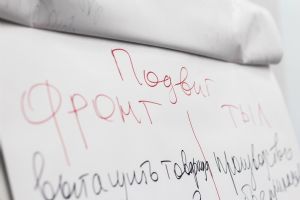 Подвиг
Фронт тыл
вытащить товарища производство